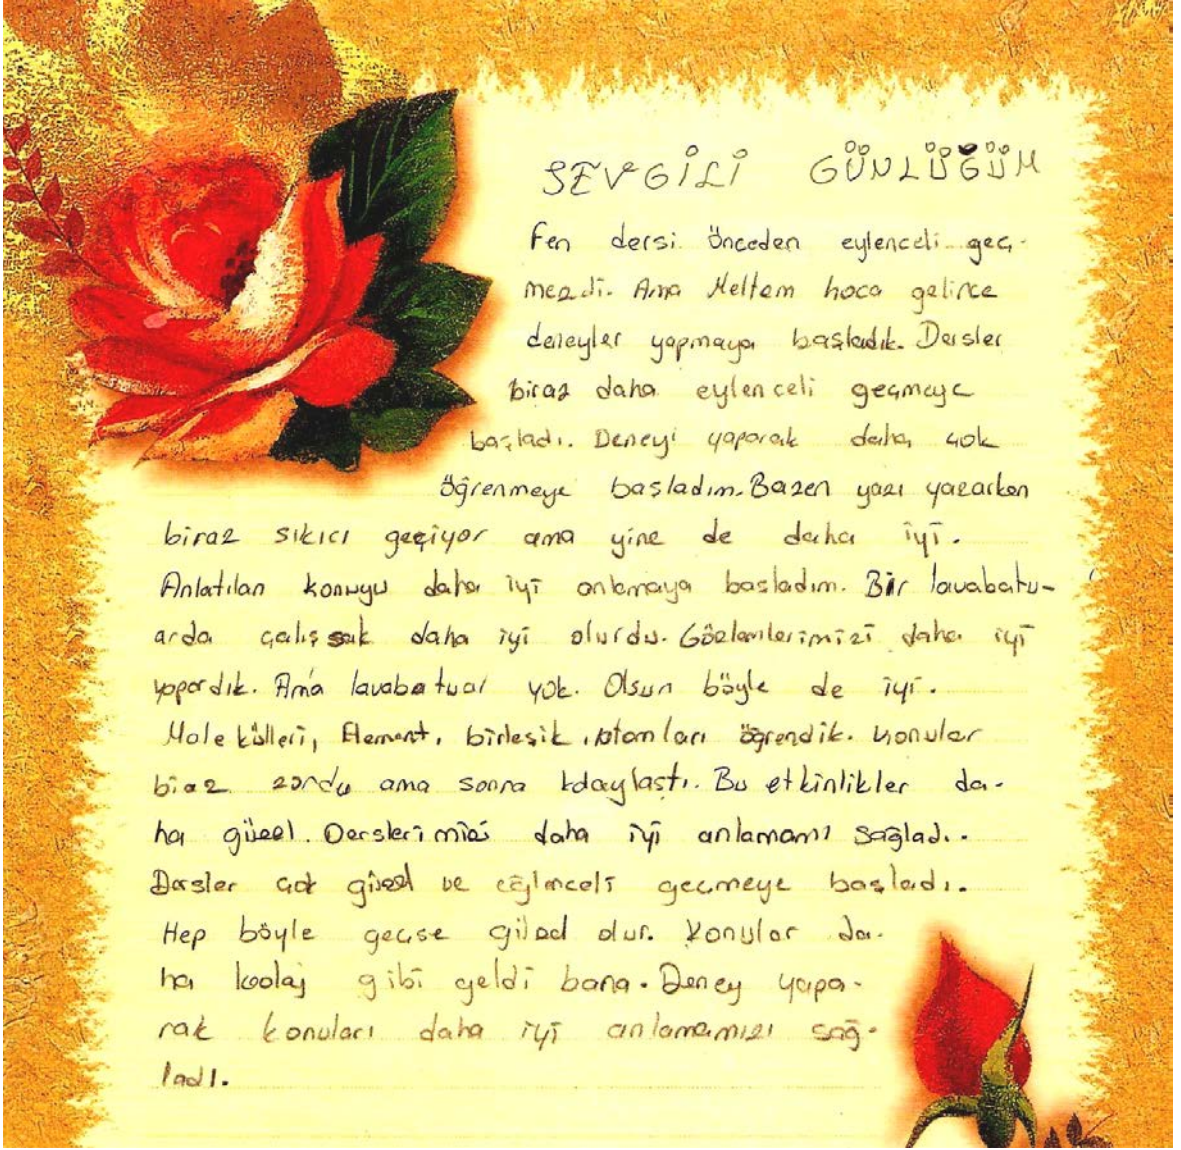 SEVGİLİ GÜNLÜĞÜM
Fen dersi önceden eylenceli geç-
mezdi. Ama Meltem hoca gelince
deneyler yapmaya başladık. Dersler
biraz daha eylenceli geçmeye
başladı. Deneyi yaparak daha çok
öğrenmeye başladım. Bazen yazı yazarken
biraz sıkıcı geçiyor ama yine de daha iyi.
Anlatılan konuyu daha iyi anlamaya başladım. Bir lavabatu-
arda çalışsak daha iyi olurdu. Gözlemlerimizi daha iyi
yapardık. Ama lavabatuar yok. Olsun böyle de iyi.
Molekülleri, Element, birleşik, atomları öğrendik. Konular
biraz zordu ama sonra kolaylaştı. Bu etkinlikler da-
ha güzel. Derslerimizi daha iyi anlamamı sağladı.
Dersler çok güzel ve eğlenceli geçmeye başladı.
Hep böyle geçse güzel olur. Konular da-
ha koolaj gibi geldi bana. Deney yapa-
rak konuları daha iyi anlamamızı sağ-
ladı.